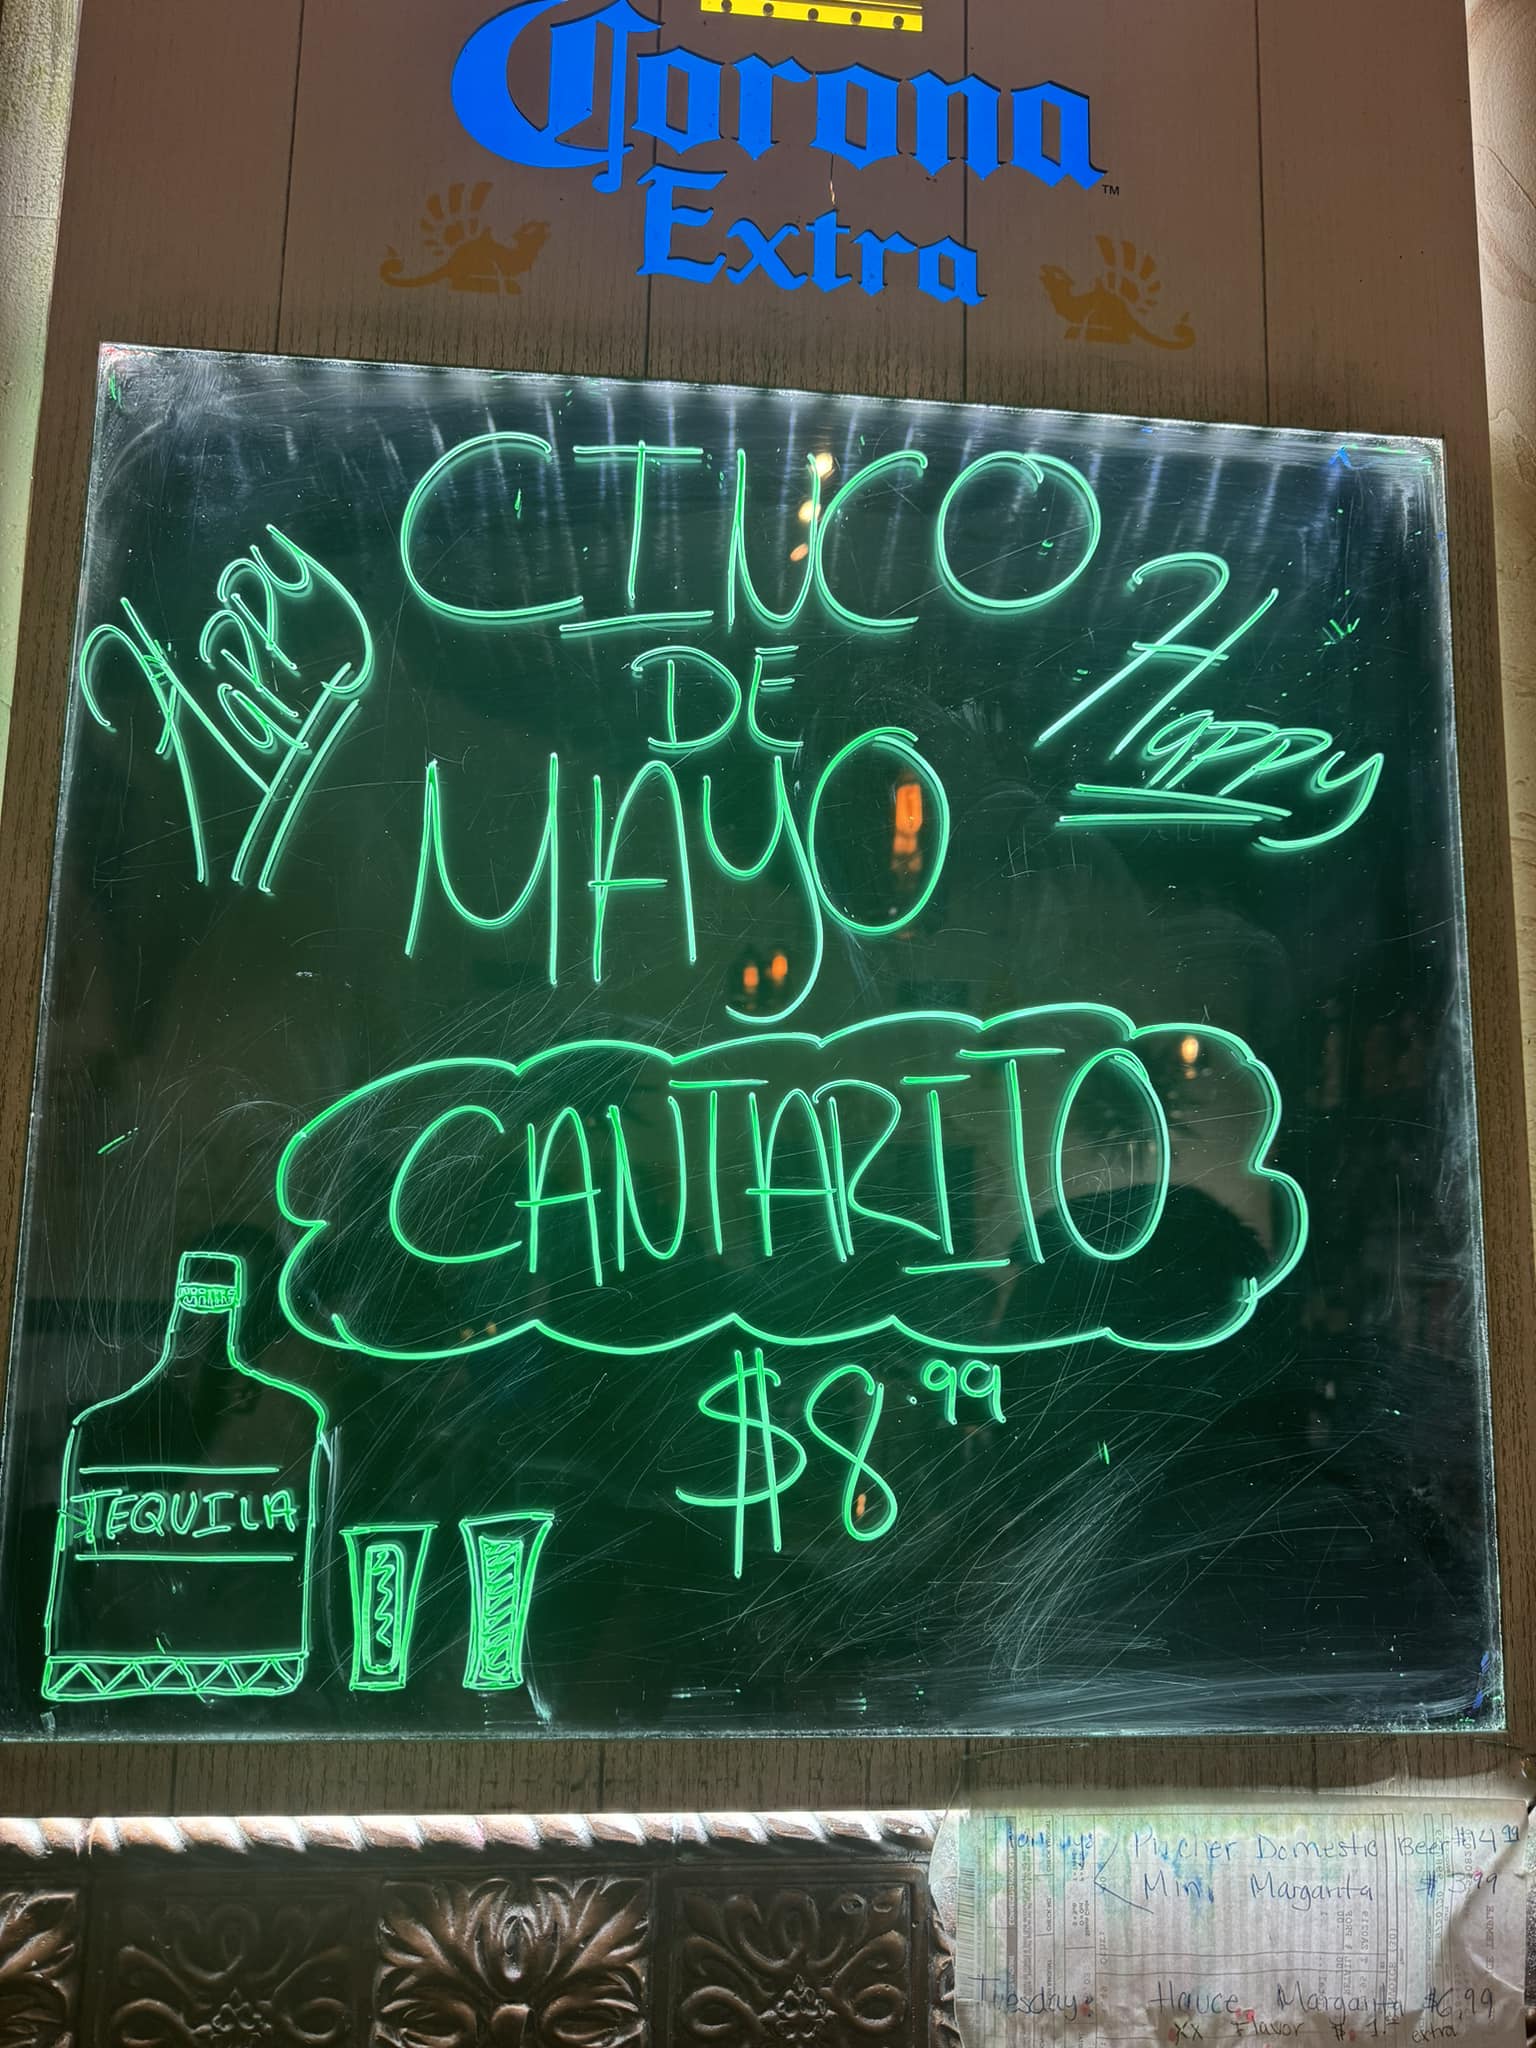 Corona
Extra
TM
Happy
CINCO
DE
MAYO
Happy
CANTARITO
$8.99
TEQUILA
Pircher Domestic Beer $14.99
Mini Margarita $3.99
Tuesday: House Margarita $6.99
xx Flavor $1.- extra